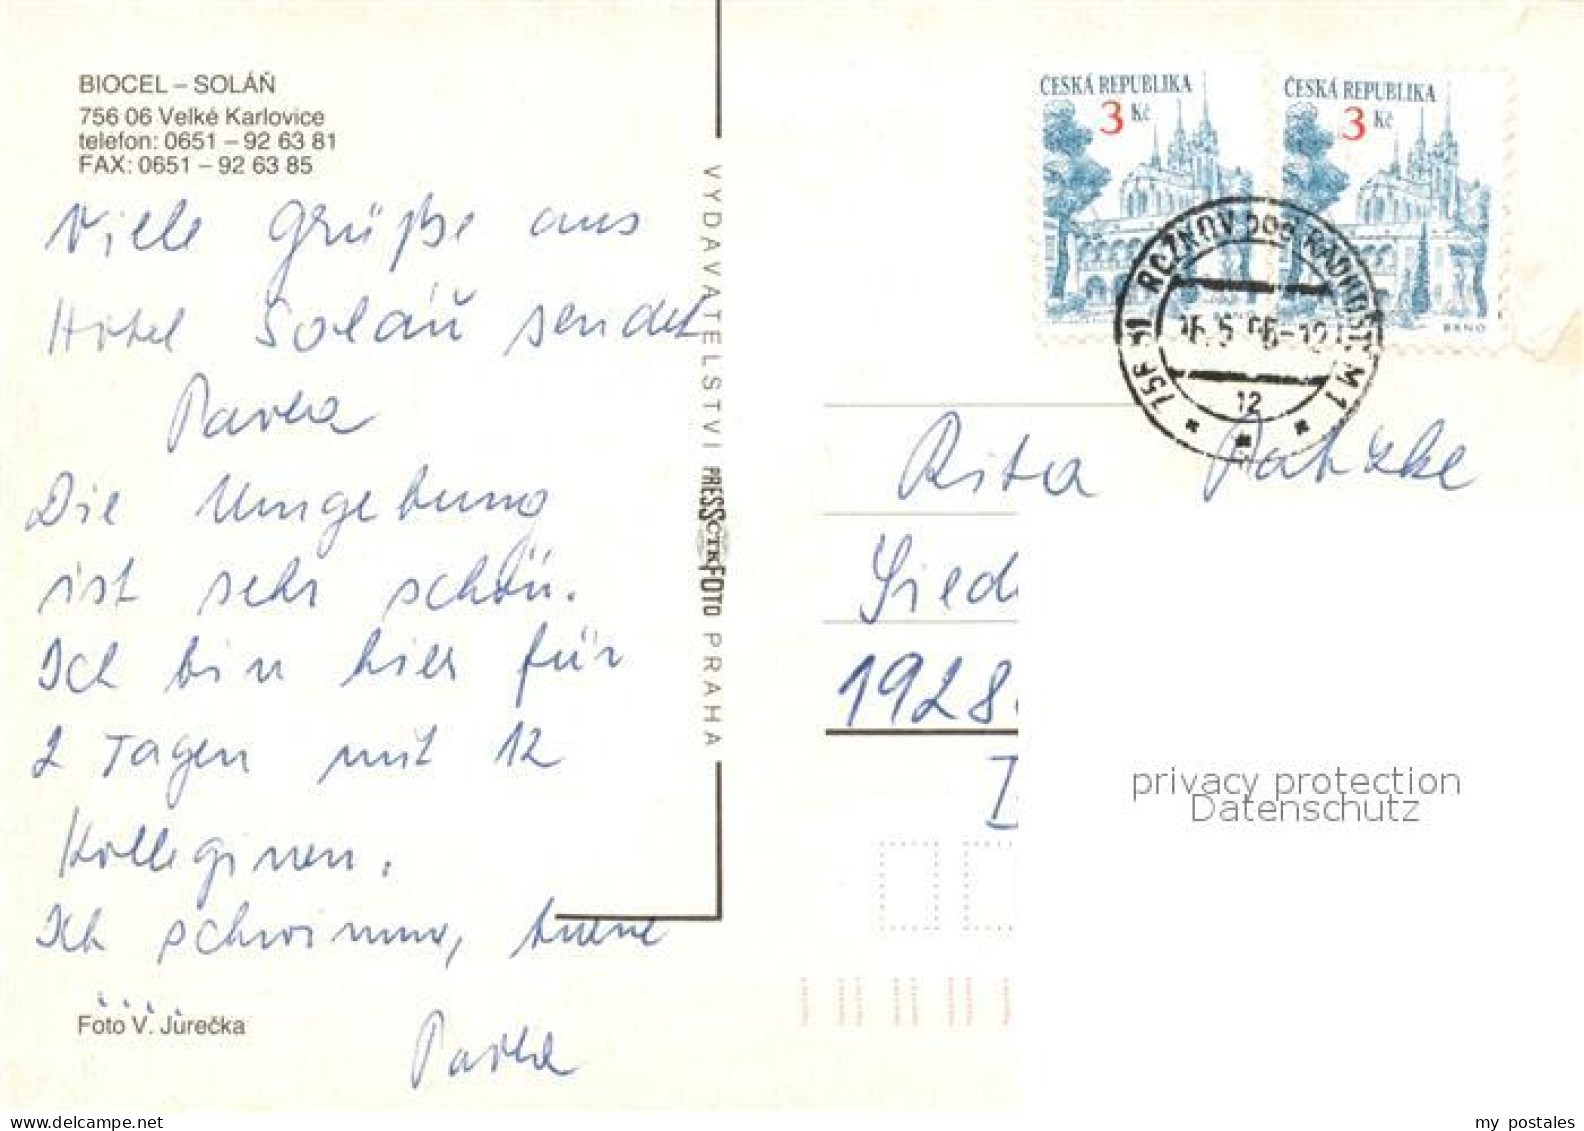 BIOCEL – SOLÁŇ
756 06 Velké Karlovice
telefon: 0651 – 92 63 81
FAX: 0651 – 92 63 85
Viele Grüße aus
Hotel Soláň sendet
Pavla
Die Umgebung
ist sehr schön.
Ich bin hier für
2 Tagen mit 12
Kolleginnen.
Ich schwimme, turne
...
Pavla
Foto V. Jůrečka
VYDAVATELSTVÍ PRESSFOTO PRAHA
ČTK
ČESKÁ REPUBLIKA
3 Kč
ČESKÁ REPUBLIKA
3 Kč
BRNO
ROŽNOV POD RADHOŠTĚM 1
12
Rita
Sied
1928
privacy protection
Datenschutz
my postales